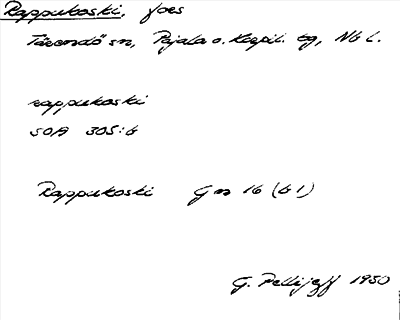 Rappukoski, fors
Tärendö sn, Pajala o. Korpil. tg, Nb l.
rappukoski
SOA 305:6
Rappukoski Gm 16 (61)
G. Pellijeff 1950